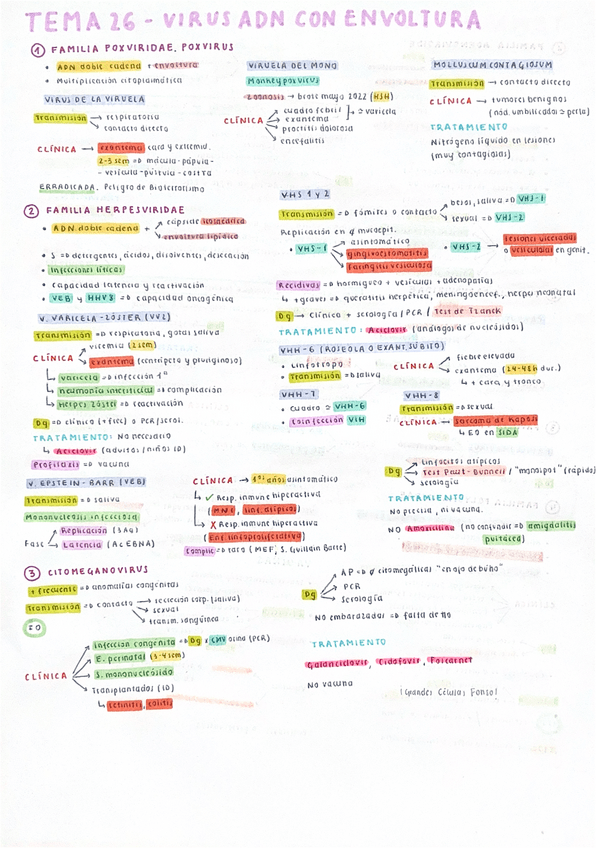 TEMA 26 - VIRUS ADN CON ENVOLTURA
① FAMILIA POXVIRIDAE. POXVIRUS
• ADN doble cadena + envoltura
• Multiplicación citoplasmática
VIRUS DE LA VIRUELA
Transmisión → respiratorio
→ contacto directo
CLÍNICA → exantema cara y extremid.
2-3 sem => mácula-pápula-
- vesícula-pústula-costra
ERRADICADA. Peligro de Bioterrorismo
VIRUELA DEL MONO
Monkeypoxvirus
Zoonosis → brote mayo 2022 (HSH)
CLÍNICA
cuadro febril
exantema
→ ≠ varicela
proctitis dolorosa
encefalitis
MOLLUSCUM CONTAGIOSUM
Transmisión → contacto directo
CLÍNICA → tumores benignos
(nód. umbilicados o perla)
TRATAMIENTO
Nitrógeno líquido en lesiones
(muy contagiosas)
② FAMILIA HERPESVIRIDAE
• ADN doble cadena + cápside icosaédrica
envoltura lipídica
• S => detergentes, ácidos, disolventes, desecación
• Infecciones líticas
• Capacidad latencia y reactivación
• VEB y HHV8 => capacidad oncogénica
V. VARICELA-ZÓSTER (VVZ)
Transmisión => respiratoria, gotas saliva
CLÍNICA
viremia (2 sem)
exantema (centrípeto y pruriginoso)
varicela => infección 1ª
neumonía intersticial => complicación
Herpes Zóster => reactivación
Dg => clínico (+ frec) o PCR/serol.
TRATAMIENTO: No necesario
↳ Aciclovir (adultos / niños ID)
Profilaxis => vacuna
VHS 1 y 2
Transmisión => fómites o contacto
besos, saliva => VHS-1
sexual => VHS-2
Replicación en φ mucoepit.
• VHS-1
asintomático
gingivoestomatitis
faringitis vesiculosa
• VHS-2 → lesiones ulceradas
o vesiculosas en genit.
Recidivas => hormigueo + vesículas + adenopatías
↳ + graves => queratitis herpética, meningoencef., herpes neonatal
Dg → Clínica + serología / PCR / Test de Tzanck
TRATAMIENTO: Aciclovir (análogos de nucleósidos)
VHH-6 (ROSEOLA O EXANT. SÚBITO)
• Linfotropo
• Transmisión => saliva
CLÍNICA
fiebre elevada
exantema (24-48h duc.)
↳ + cara y tronco
VHH-7
• cuadro ≈ VHH-6
• Coinfección VIH
VHH-8
Transmisión => sexual
CLÍNICA → Sarcoma de Kaposi
↳ EO en SIDA
V. EPSTEIN-BARR (VEB)
Transmisión => saliva
Mononucleosis infecciosa
Fase
Replicación (3Ag)
Latencia (Ac EBNA)
CLÍNICA → 1ºs años asintomático
↳ ✓ Resp. inmune hiperactiva
(MNI, linf. atípicos)
↳ X Resp. inmune hiperactiva
(Enf. linfoproliferativa)
Complic => raro (MEF, S. Guillain Barré)
Dg
linfocitos atípicos
Test Paul-Bunnell / "monospot" (rápido)
serología
TRATAMIENTO
No precisa, ni vacuna.
NO Amoxicilina (no confundir => amigdalitis
pultácea)
③ CITOMEGANOVIRUS
+ frecuente => anomalías congénitas
Transmisión => contacto
secreción corp. (saliva)
sexual
transm. sanguínea
EO
CLÍNICA
Infección congénita => Dg x CMV orina (PCR)
E. perinatal (3-4 sem)
S. mononucleósido
Transplantados (ID)
↳ retinitis, colitis
Dg
AP => φ citomegálicas "en ojo de búho"
PCR
serología
NO embarazadas => falta de no
TRATAMIENTO
Gananciclovir, Cidofovir, Foscarnet
NO vacuna
¡Grandes Células Fonso!